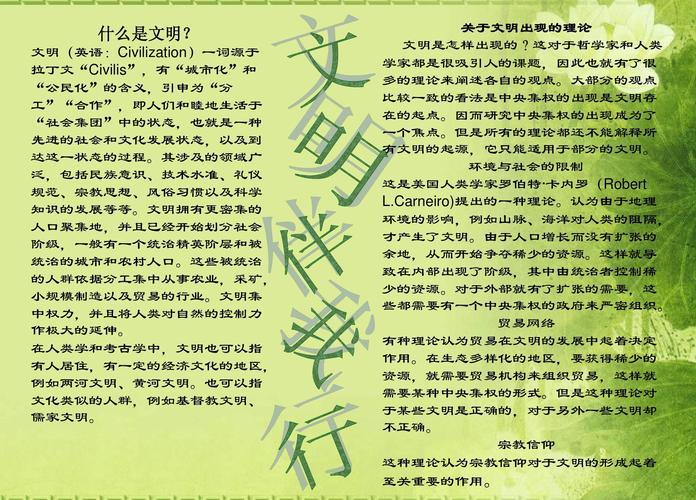 什么是文明？
文明（英语：Civilization）一词源于
拉丁文“Civilis”，有“城市化”和
“公民化”的含义，引申为“分
工”“合作”，即人们和睦地生活于
“社会集团”中的状态，也就是一种
先进的社会和文化发展状态，以及到
达这一状态的过程。其涉及的领域广
泛，包括民族意识、技术水准、礼仪
规范、宗教思想、风俗习惯以及科学
知识的发展等等。文明拥有更密集的
人口聚集地，并且已经开始划分社会
阶级，一般有一个统治精英阶层和被
统治的城市和农村人口。这些被统治
的人群依据分工集中从事农业，采矿，
小规模制造以及贸易的行业。文明集
中权力，并且将人类对自然的控制力
作极大的延伸。
在人类学和考古学中，文明也可以指
有人居住，有一定的经济文化的地区，
例如两河文明、黄河文明。也可以指
文化类似的人群，例如基督教文明、
儒家文明。
文明伴我行
关于文明出现的理论
文明是怎样出现的？这对于哲学家和人类
学家都是很吸引人的课题，因此也就有了很
多的理论来阐述各自的观点。大部分的观点
比较一致的看法是中央集权的出现是文明存
在的起点。因而研究中央集权的出现成为了
一个焦点。但是所有的理论都还不能解释所
有文明的起源，它只能适用于部分的文明。
环境与社会的限制
这是美国人类学家罗伯特·卡内罗（Robert
L.Carneiro)提出的一种理论。认为由于地理
环境的影响，例如山脉、海洋对人类的阻隔，
才产生了文明。由于人口增长而没有扩张的
余地，从而开始争夺稀少的资源。这样就导
致在内部出现了阶级，其中由统治者控制稀
少的资源。对于外部就有了扩张的需要，这
些都需要有一个中央集权的政府来严密组织。
贸易网络
有种理论认为贸易在文明的发展中起着决定
作用。在生态多样化的地区，要获得稀少的
资源，就需要贸易机构来组织贸易，这样就
需要某种中央集权的形式。但是这种理论对
于某些文明是正确的，对于另外一些文明却
不正确。
宗教信仰
这种理论认为宗教信仰对于文明的形成起着
至关重要的作用。